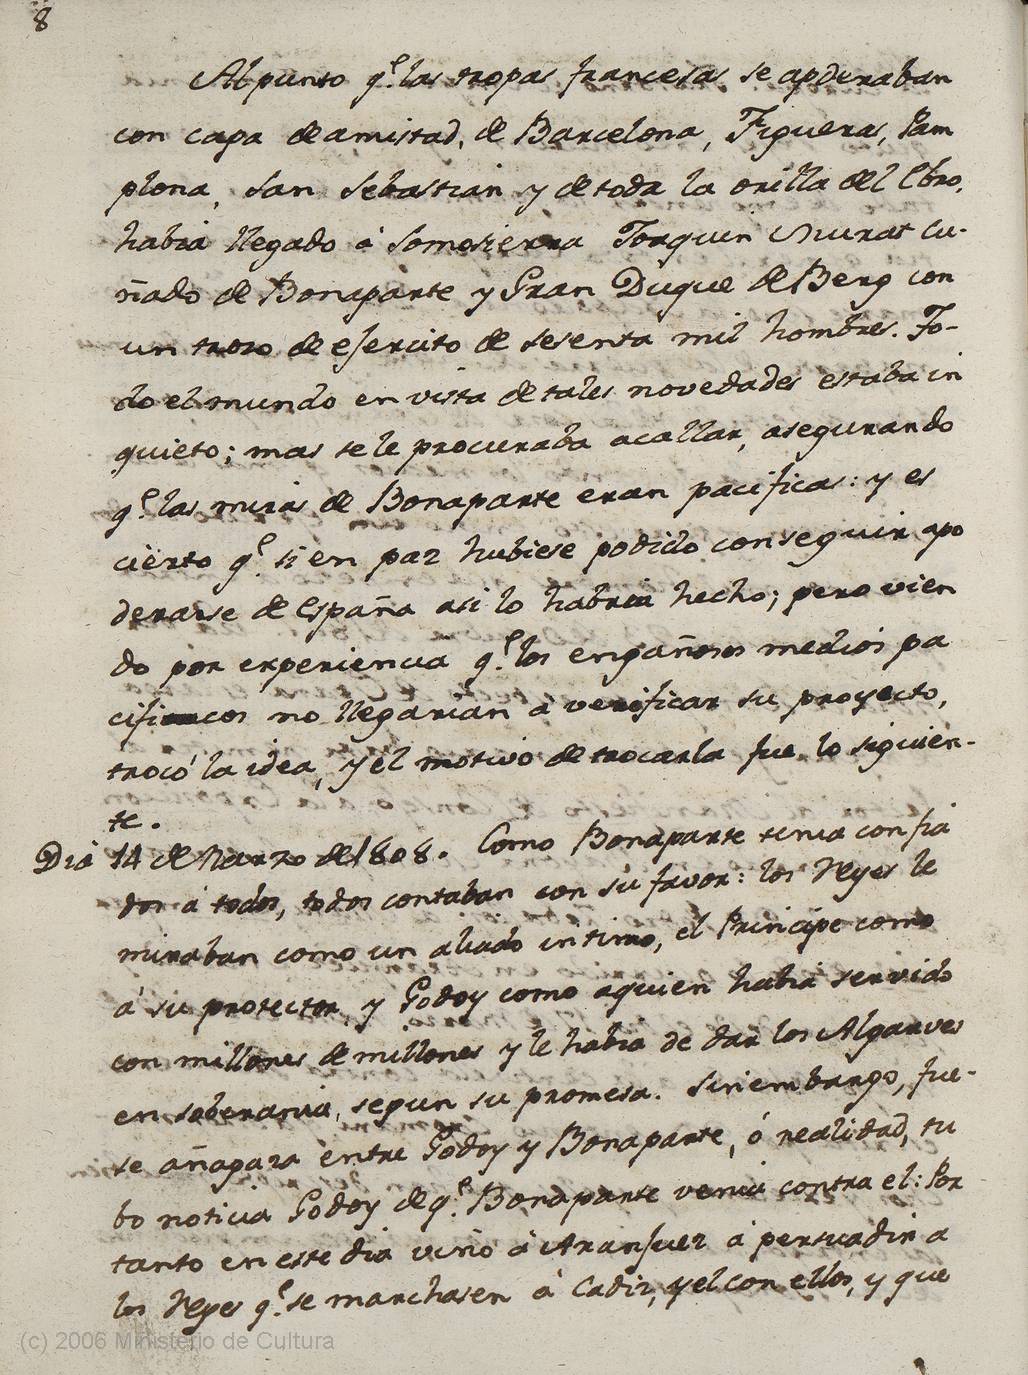 8
Al punto q.e las tropas francesas se apderaban
con capa de amistad, de Barcelona, Figueras, Pam
plona, San Sebastian y de toda la orilla del Ebro,
habia llegado á Somosierra Joaquin Murat Cu-
ñado de Bonaparte y Gran Duque de Berg con
un trozo de ejercito de sesenta mil hombres. To-
do el mundo en vista de tales novedades estaba in
quieto; mas se le procuraba acallar, asegurando
q.e las miras de Bonaparte eran pacificas: y es
cierto q.e si en paz hubiese podido conseguir apo
derarse de España asi lo habria hecho; pero vien
do por experiencia q.e los engañosos medios pa
cificos no llegarian á verificar su proyecto,
trocó la idea, y el motivo de trocarla fue lo siguien-
te.
Dia 14 de Marzo de 1808. Como Bonaparte tenia confia
dos á todos, todos contaban con su favor: los Reyes le
miraban como un aliado intimo, el Principe como
á su protector, y Godoy como aquien habia servido
con millones de millones y le habia de dar los Algarves
en soberania, segun su promesa. Sin embargo, fue-
se añagaza entre Godoy y Bonaparte, ó realidad, tu
bo noticia Godoy de q.e Bonaparte venia contra el: Por
tanto en este dia vino á Aranjuez á persuadir a
los Reyes q.e se marchasen á Cadiz, y el con ellos, y que
(c) 2006 Ministerio de Cultura